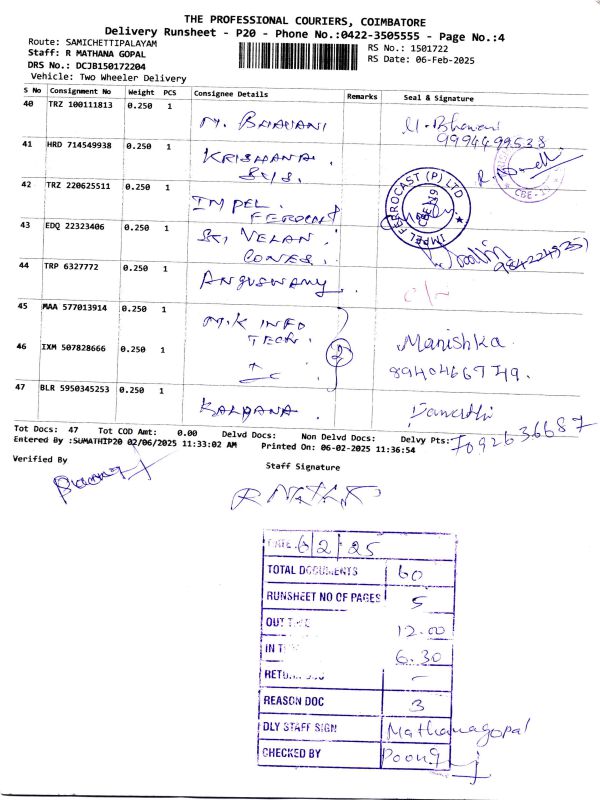 THE PROFESSIONAL COURIERS, COIMBATORE
Delivery Runsheet - P20 - Phone No.:0422-3505555 - Page No.:4
Route: SAMICHETTIPALAYAM
RS No.: 1501722
Staff: R MATHANA GOPAL
RS Date: 06-Feb-2025
DRS No.: DCJB150172204
Vehicle: Two Wheeler Delivery
S No Consignment No Weight PCS Consignee Details Remarks Seal & Signature
40 TRZ 100111813 0.250 1 M. BHAVANI M. Bhavani
9994499538
41 HRD 714549938 0.250 1 KRISHANA
SYS.
42 TRZ 220625511 0.250 1 IMPEL
FEROCAST
IMPEL FERROCAST (P) LTD
43 EDQ 22323406 0.250 1 SRI VELAN
CONES.
44 TRP 6327772 0.250 1 ANGUSWAMY
45 MAA 577013914 0.250 1 M.K INFO
TECH. Manishka.
46 IXM 507828666 0.250 1 2 8940466949.
47 BLR 5950345253 0.250 1 KALPANA
Tot Docs: 47 Tot COD Amt: 0.00 Delvd Docs: Non Delvd Docs: Delvy Pts: 7092636687
Entered By :SUMATHIP20 02/06/2025 11:33:02 AM Printed On: 06-02-2025 11:36:54
Verified By
Staff Signature
DATE 6/2/25
TOTAL DOCUMENTS 60
RUNSHEET NO OF PAGES 5
OUT TIME 12.00
IN TIME 6.30
RETURN DOC -
REASON DOC 3
DLY STAFF SIGN Mathanagopal
CHECKED BY